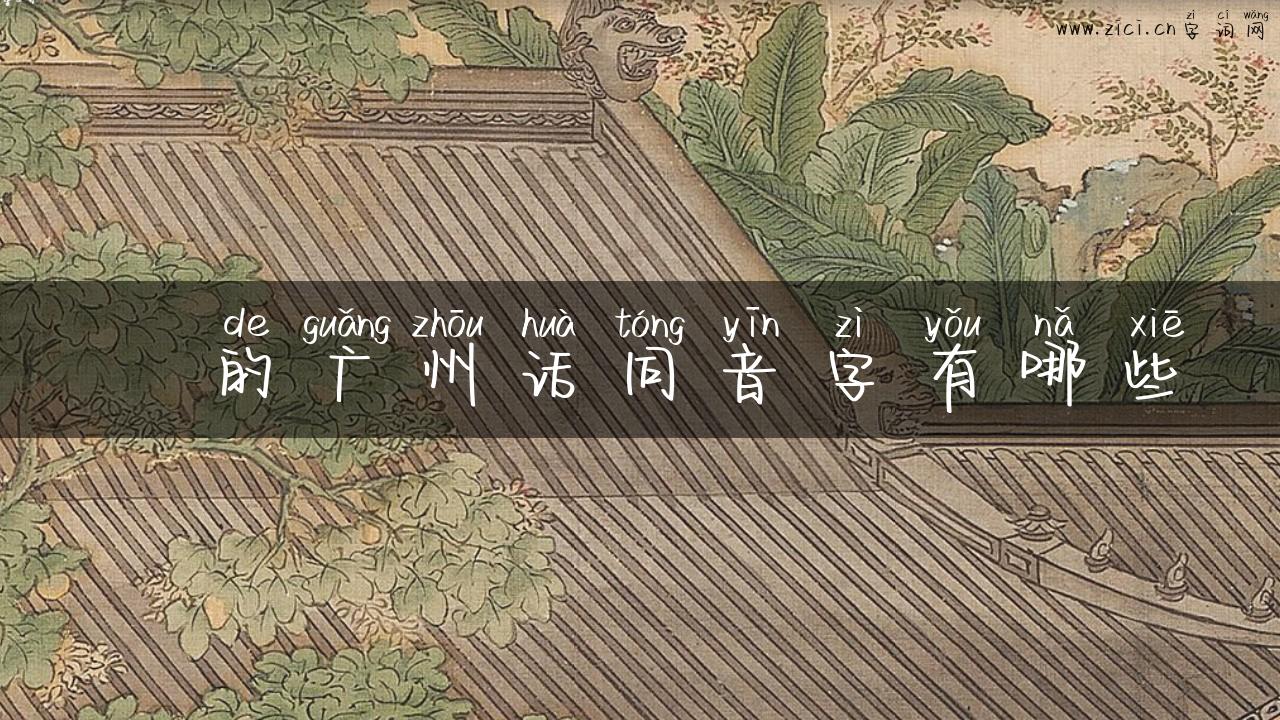 www.zici.cn zì cí wǎng
字词网
de guǎng zhōu huà tóng yīn zì yǒu nǎ xiē
的广州话同音字有哪些